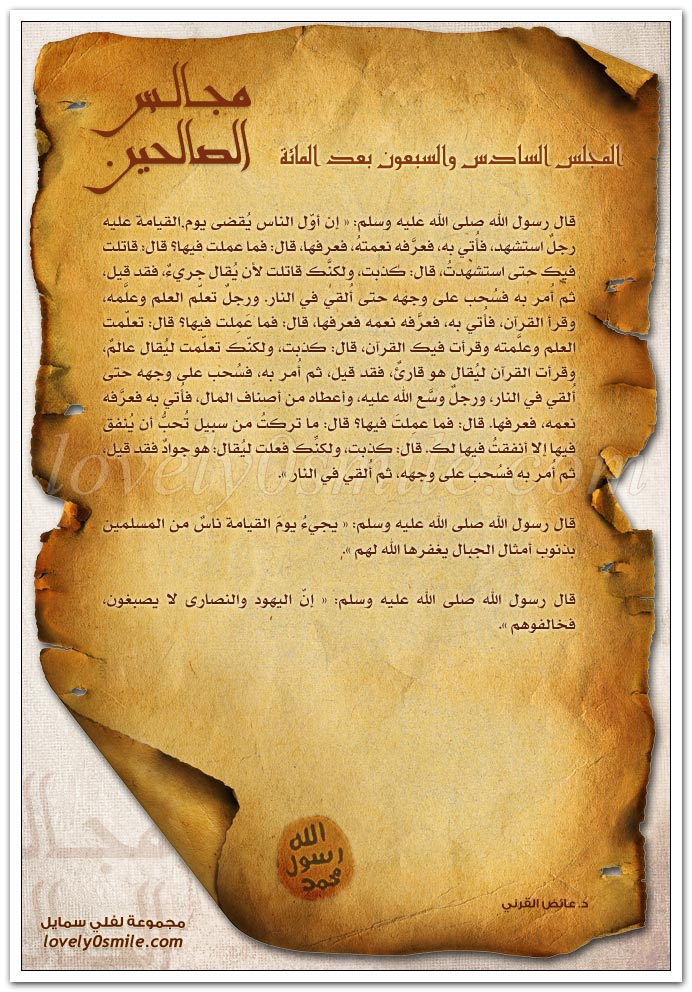 مجالس
الصالحين
المجلس السادس والسبعون بعد المائة
قال رسول الله صلى الله عليه وسلم: « إن أوّل الناس يُقضى يوم القيامة عليه
رجلٌ استشهد، فأُتي به، فعرَّفه نعمتهُ، فعرفها، قال: فما عملت فيها؟ قال: قاتلت
فيك حتى استشهدتُ، قال: كذبت، ولكنَّك قاتلت لأن يُقال جريءٌ، فقد قيل،
ثم أُمر به فسُحب على وجهه حتى أُلقي في النار. ورجلٌ تعلّم العلم وعلَّمه،
وقرأ القرآن، فأُتي به، فعرَّفه نعمه فعرفها، قال: فما عَمِلت فيها؟ قال: تعلّمت
العلم وعلَّمته وقرأت فيك القرآن، قال: كذبت، ولكنّك تعلّمت ليُقال عالمٌ،
وقرأت القرآن ليُقال هو قارئٌ، فقد قيل، ثم أُمر به، فسُحب على وجهه حتى
أُلقي في النار، ورجلٌ وسَّع الله عليه، وأعطاه من أصناف المال، فأُتي به فعرَّفه
نعمه، فعرفها. قال: فما عملتَ فيها؟ قال: ما تركتُ من سبيل تُحبُّ أن يُنفق
فيها إلا أنفقتُ فيها لك. قال: كذبت، ولكنِّك فعلت ليُقال: هو جوادٌ فقد قيل،
ثم أُمر به فسُحب على وجهه، ثم أُلقي في النار ».
قال رسول الله صلى الله عليه وسلم: « يجيءُ يومَ القيامة ناسٌ من المسلمين
بذنوب أمثال الجبال يغفرها الله لهم ».
قال رسول الله صلى الله عليه وسلم: « إنّ اليهود والنصارى لا يصبغون،
فخالفوهم ».
lovely0smile.com
الله
رسول
محمد
د. عائض القرني
مجموعة لفلي سمايل
lovely0smile.com